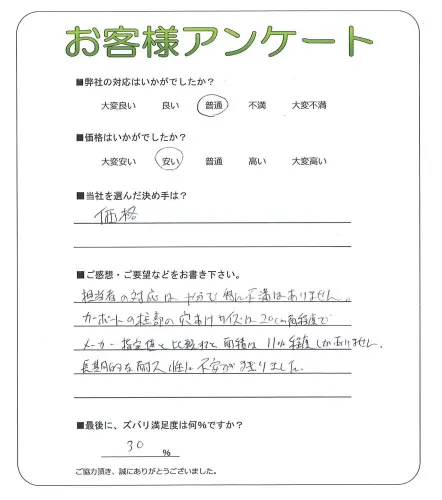 お客様アンケート
■弊社の対応はいかがでしたか？
大変良い 良い 普通 不満 大変不満
■価格はいかがでしたか？
大変安い 安い 普通 高い 大変高い
■当社を選んだ決め手は？
価格
■ご感想・ご要望などをお書き下さい。
担当者の対応は 特に不満はありません。
カーポートの柱部の穴あけサイズは20cm角程度で
メーカー指定値と比較すると面積は11%程度しかありません。
長期的な耐久性に不安が
■最後に、ズバリ満足度は何%ですか？
30 %
ご協力頂き、誠にありがとうございました。